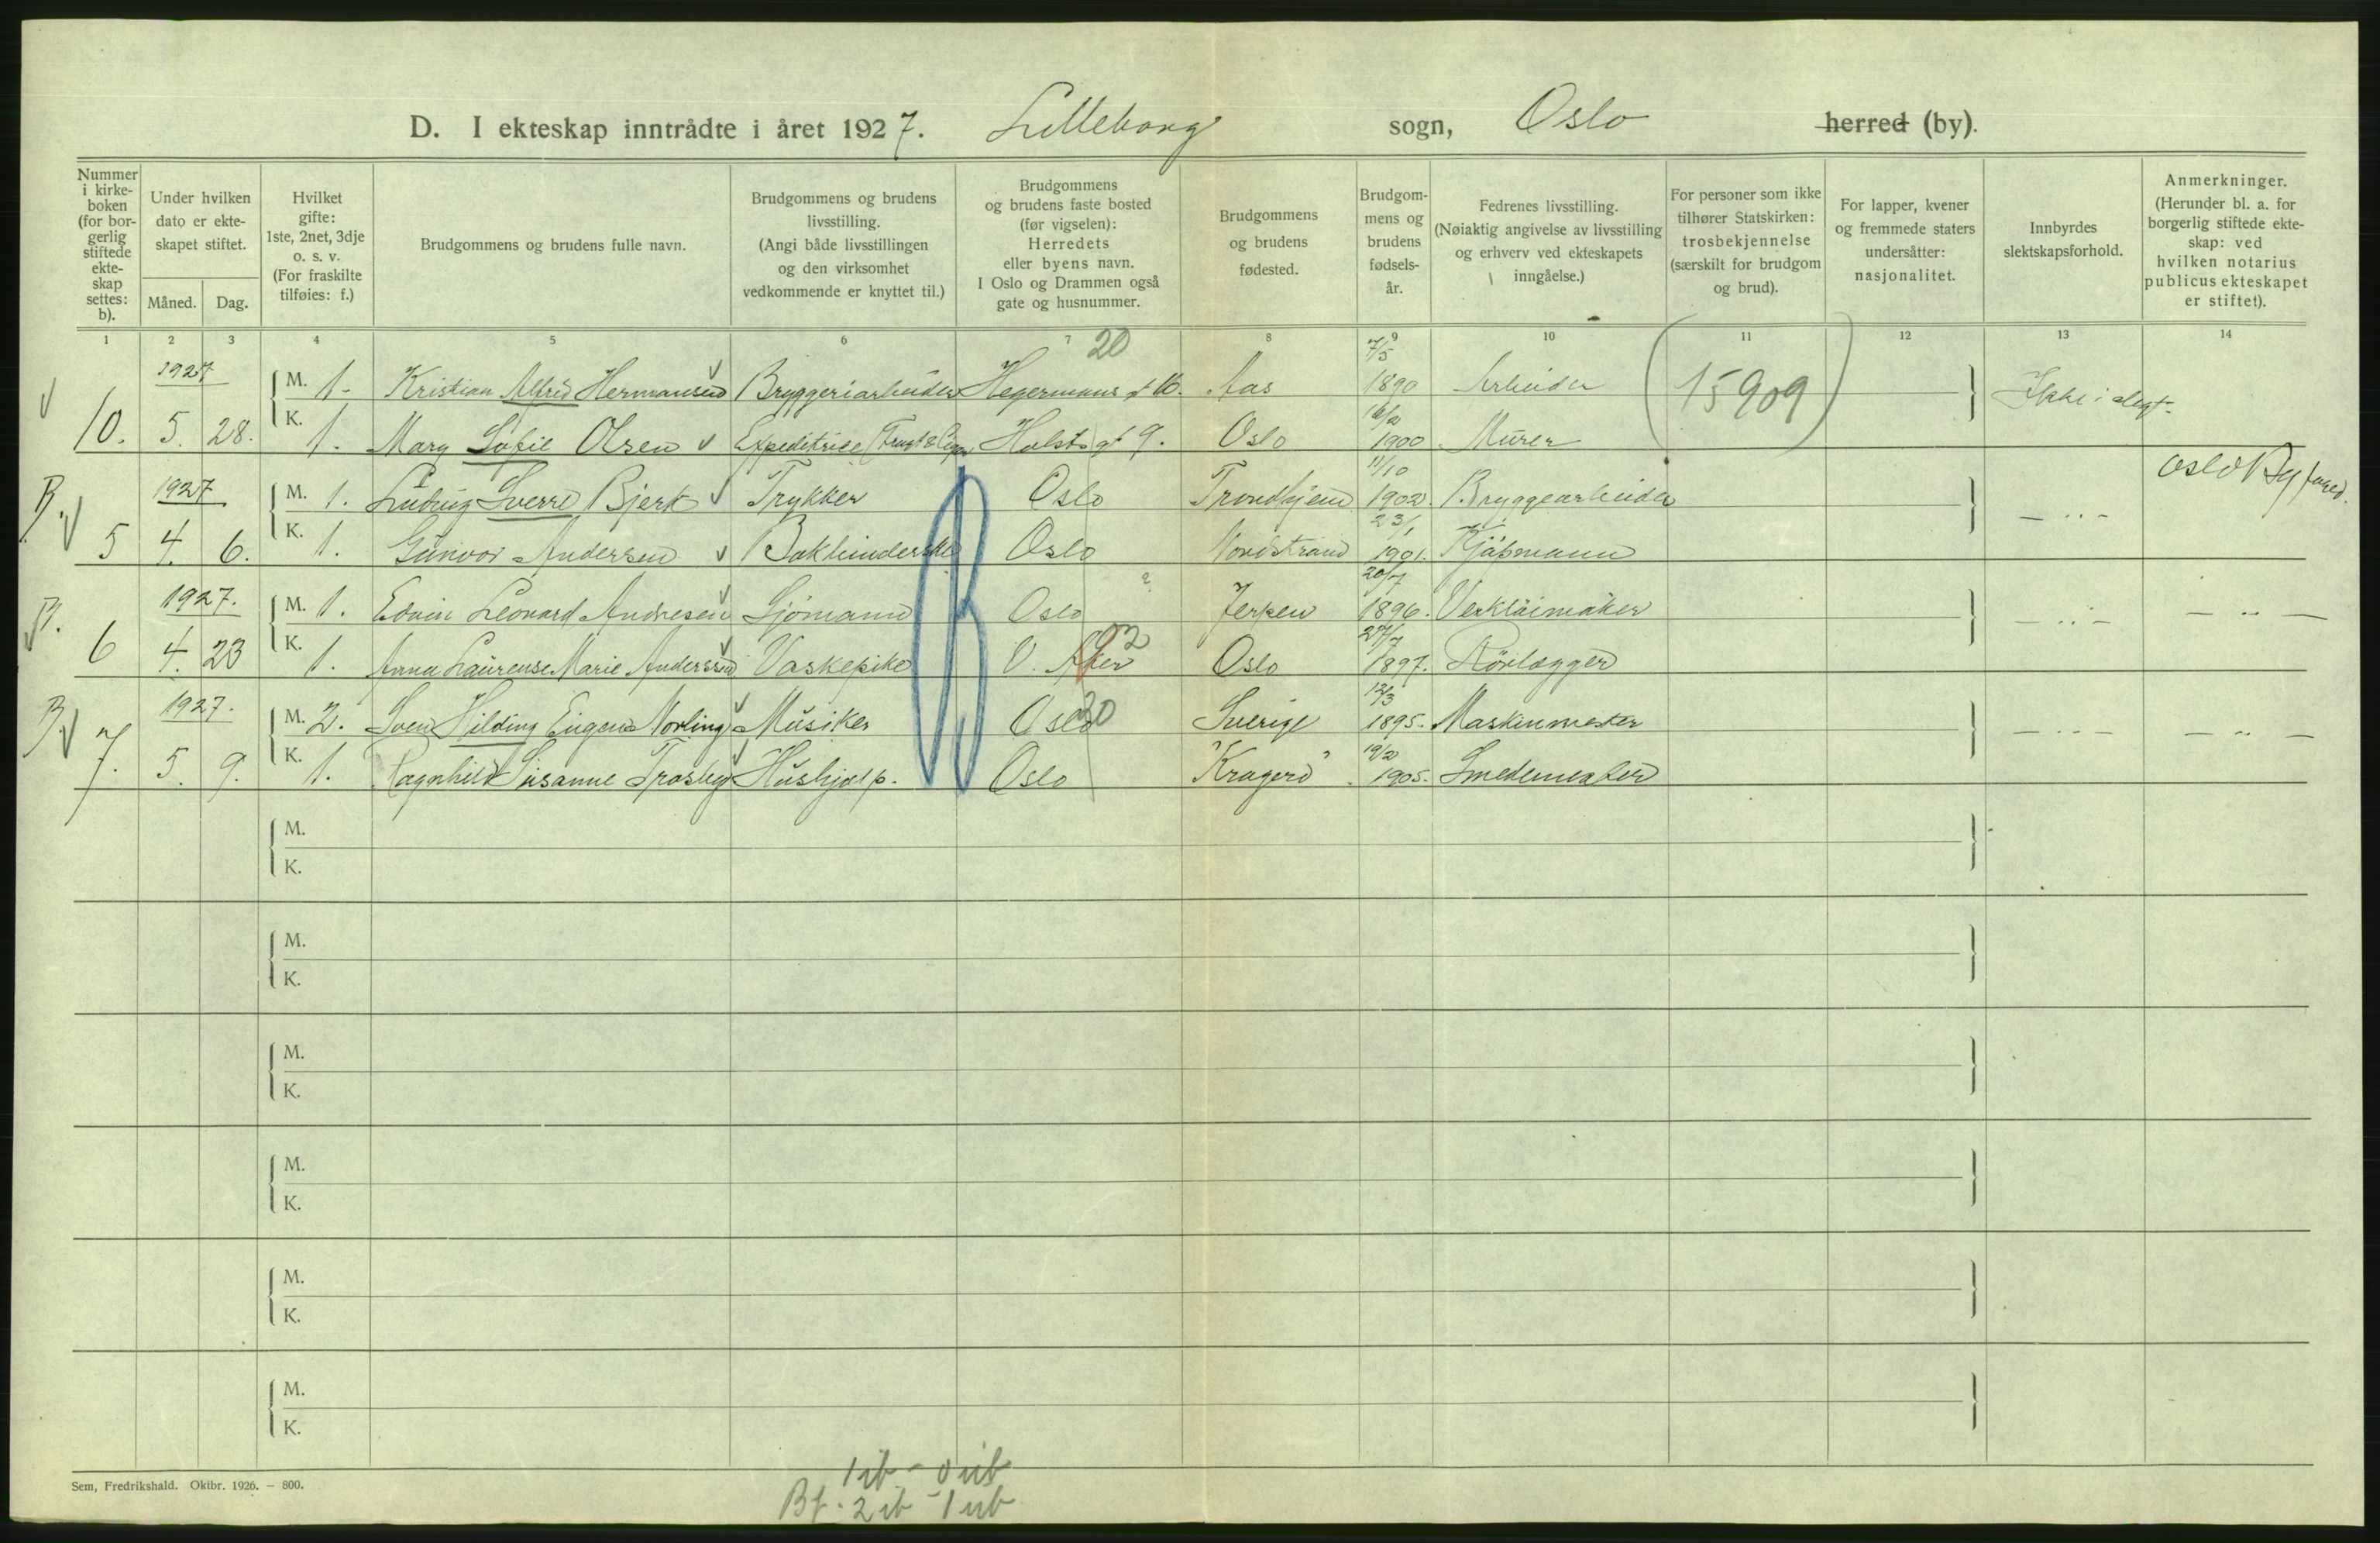 D. I ekteskap inntrådte i året 1927. Lilleborg sogn, Oslo herred (by).
Nummer i kirke-boken (for bor-gerlig stiftede ekte-skap settes: b).
Under hvilken dato er ekte-skapet stiftet.
Måned. Dag.
Hvilket gifte: 1ste, 2net, 3dje o. s. v. (For fraskilte tilføies: f.)
Brudgommens og brudens fulle navn.
Brudgommens og brudens livsstilling. (Angi både livsstillingen og den virksomhet vedkommende er knyttet til.)
Brudgommens og brudens faste bosted (før vigselen): Herredets eller byens navn. I Oslo og Drammen også gate og husnummer.
Brudgommens og brudens fødested.
Brudgom-mens og brudens fødsels-år.
Fedrenes livsstilling. (Nøiaktig angivelse av livsstilling og erhverv ved ekteskapets inngåelse.)
For personer som ikke tilhører Statskirken: trosbekjennelse (særskilt for brudgom og brud).
For lapper, kvener og fremmede staters undersåtter: nasjonalitet.
Innbyrdes slektskapsforhold.
Anmerkninger. (Herunder bl. a. for borgerlig stiftede ekte-skap: ved hvilken notarius publicus ekteskapet er stiftet).
1 2 3 4 5 6 7 8 9 10 11 12 13 14
20 7/5
1927 M. 1. Kristian Alfred Hermansen Bryggeriarbeider Hegermans gt 16. Aas 1890 Arbeider (15909) Ikke i slegt.
16/2
10. 5. 28. K. 1. Mary Sofie Olsen Expeditrice Holsts gt 9. Oslo 1900 Murer
11/10
B. 1927 M. 1. Ludvig Sverre Bjerk Trykker Oslo Trondhjem 1902. Bryggearbeider — " — Oslo Byfoged.
23/1
5 4. 6. K. 1. Gunvor Andersen Oslo Nordstrand 1901. Kjøpmann
20/7
B. 1927. M. 1. Edvin Leonard Andresen Sjømann Oslo ? Jerpen 1896. Verktøimaker — " — — " —
27/7
6 4. 23 K. 1. Anna Laurense Marie Anderssen Vaskepike V. Aker 02 Oslo 1897. Rörlægger
12/3
B. 1927. M. 2. Sven Hilding Eugen Norling Musiker Oslo 20 Sverige 1895. Maskinmester — " — — " —
19/2
7. 5. 9. K. 1. Ragnhild Susanne Trosby Hushjælp. Oslo "Kragerö". 1905. Smedemester
M.
K.
M.
K.
M.
K.
M.
K.
M.
K.
M.
K.
Sem, Fredrikshald. Oktbr. 1926. — 800.
1 ib - 0 ub
Bf. 2 ib - 1 ub